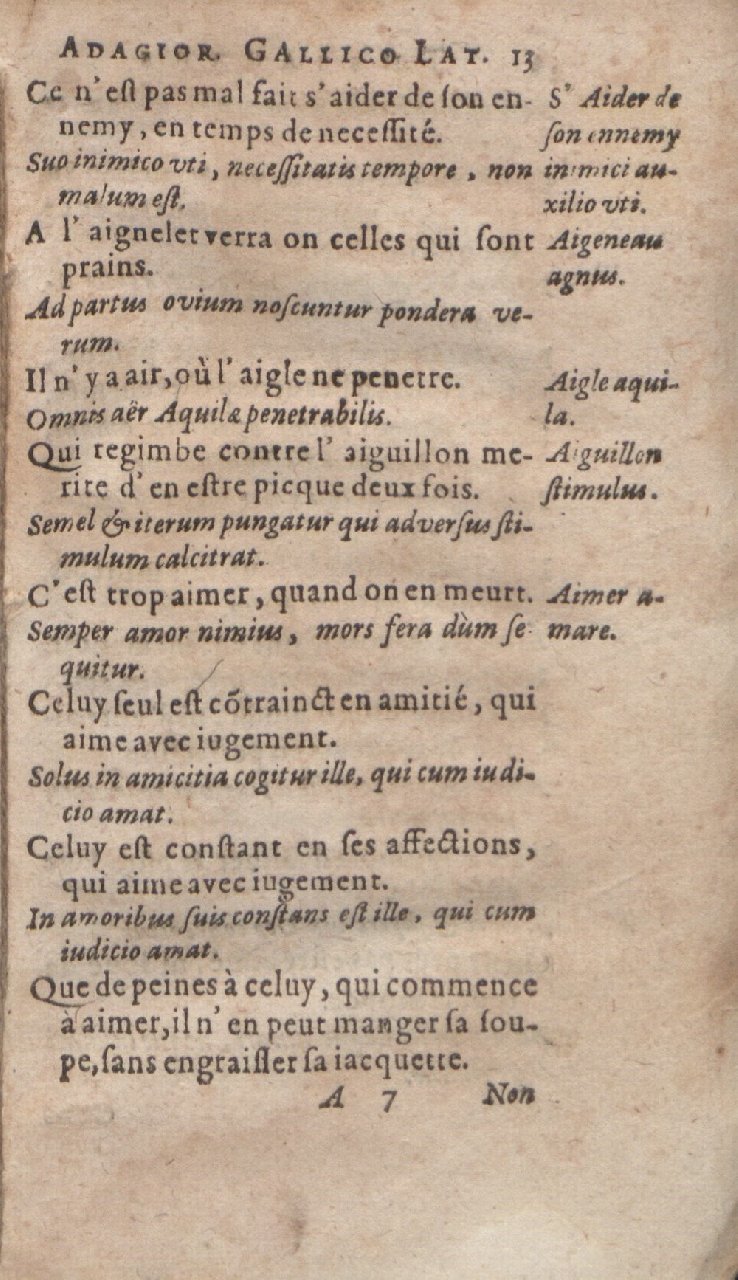 ADAGIOR. GALLICO LAT. 13
Ce n'est pas mal fait s'aider de son en-
nemy, en temps de necessité.
Suo inimico vti, necessitatis tempore, non
malum est.
S' Aider de
son ennemy
inimici au-
xilio vti.
A l'aignelet verra on celles qui sont
prains.
Aigeneau
agnus.
Ad partus ovium noscuntur pondera ve-
rum.
Il n'y a air, où l'aigle ne penetre.
Omnis aër Aquilæ penetrabilis.
Aigle aqui-
la.
Qui regimbe contre l'aiguillon me-
rite d'en estre picque deux fois.
Aiguillon
stimulus.
Semel & iterum pungatur qui adversus sti-
mulum calcitrat.
C'est trop aimer, quand on en meurt.
Semper amor nimius, mors fera dùm se
quitur.
Aimer a-
mare.
Celuy seul est cõtrainct en amitié, qui
aime avec iugement.
Solus in amicitia cogitur ille, qui cum iudi-
cio amat.
Celuy est constant en ses affections,
qui aime avec iugement.
In amoribus suis constans est ille, qui cum
iudicio amat.
Que de peines à celuy, qui commence
à aimer, il n'en peut manger sa sou-
pe, sans engraisser sa iacquette.
A 7 Non